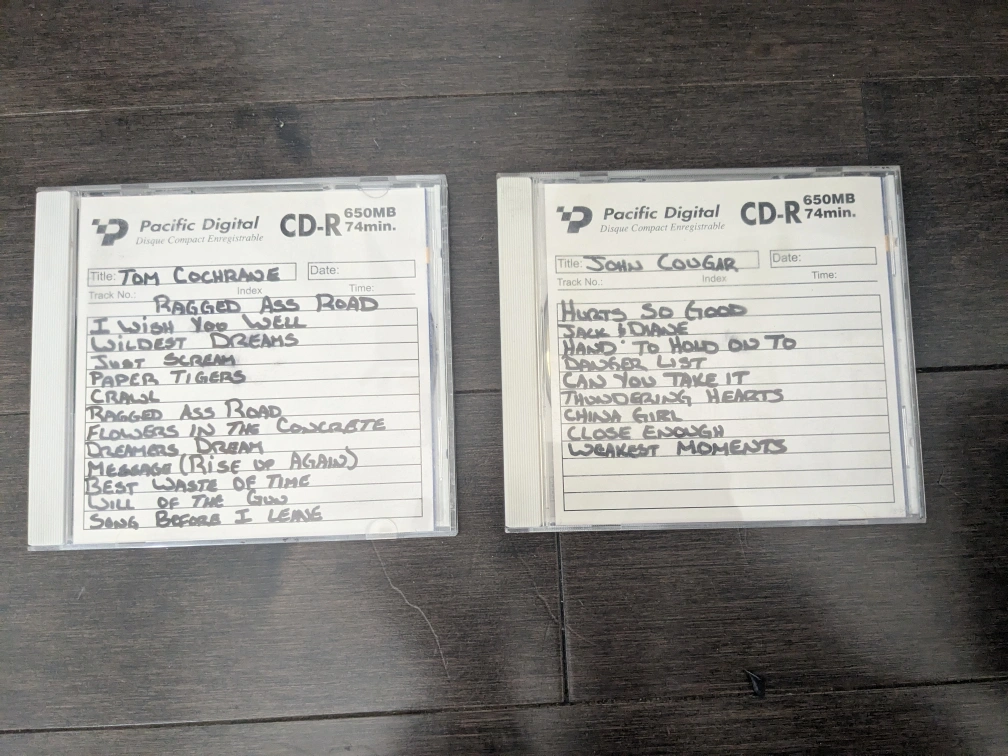 Pacific Digital CD-R 650MB 74min.
Disque Compact Enregistrable
Title: TOM COCHRANE Date:
Track No.: Index Time:
RAGGED ASS ROAD
I WISH YOU WELL
WILDEST DREAMS
JUST SCREAM
PAPER TIGERS
CRAWL
RAGGED ASS ROAD
FLOWERS IN THE CONCRETE
DREAMERS DREAM
MESSAGE (RISE UP AGAIN)
BEST WASTE OF TIME
WILL OF THE GUN
SONG BEFORE I LEAVE
Pacific Digital CD-R 650MB 74min.
Disque Compact Enregistrable
Title: JOHN COUGAR Date:
Track No.: Index Time:
HURTS SO GOOD
JACK & DIANE
HAND TO HOLD ON TO
DANGER LIST
CAN YOU TAKE IT
THUNDERING HEARTS
CHINA GIRL
CLOSE ENOUGH
WEAKEST MOMENTS